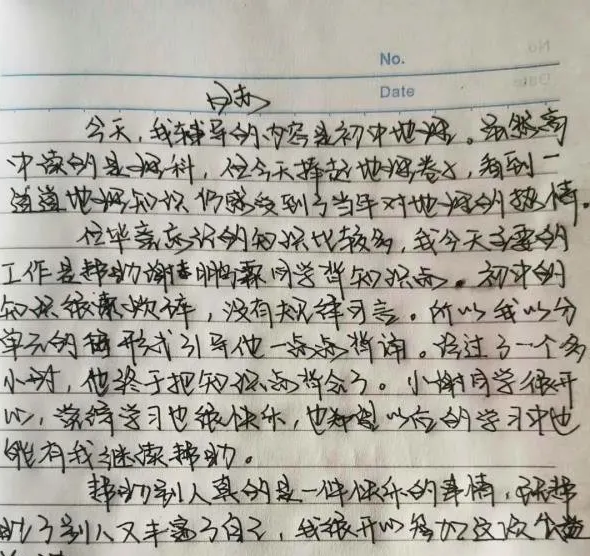 No.
Date
日志
今天，我辅导的内容是初中地理。虽然高
中读的是理科，但今天捧起地理卷子，看到一
道道地理知识仍感受到了当年对地理的热情。
但毕竟忘记的知识比较多，我今天主要的
工作是帮助谢同学背知识点。初中的
知识很琐碎，没有规律可言。所以我以分
单元的形式引导他一点点背诵。经过了一个多
小时，他终于把知识点背会了。小谢同学很开
心，觉得学习也很快乐，也希望以后的学习中也
能有我继续帮助。
帮助别人真的是一件快乐的事情，既帮
助了别人又丰富了自己，我很开心参加这次公益